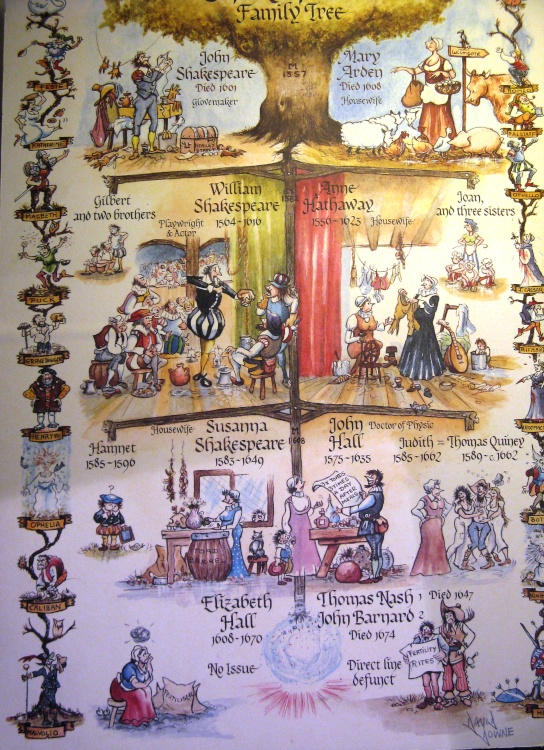 Family Tree
John
Shakespeare
Died 1601
Glovemaker
M
1557
Mary
Arden
Died 1608
Housewife
Wilmcote
Gilbert
and two brothers
William
Shakespeare
1564-1616
Playwright
& Actor
Anne
Hathaway
1556-1623
Housewife
Joan,
and three sisters
Hamnet
1585-1596
Housewife
Susanna
Shakespeare
1583-1649
1608
John
Hall
1575-1635
Doctor of Physic
Judith = Thomas Quiney
1585-1662
1589-c.1662
Elizabeth
Hall
1608-1670
No Issue
Thomas Nash 1 Died 1647
John Barnard 2
Died 1674
Direct line
defunct
FERTILITY
RITES
FERTILISER
FESTE
MACBETH
PUCK
HENRY VIII
OPHELIA
CALIBAN
MALVOLIO
ROMEO
FALSTAFF
OTHELLO